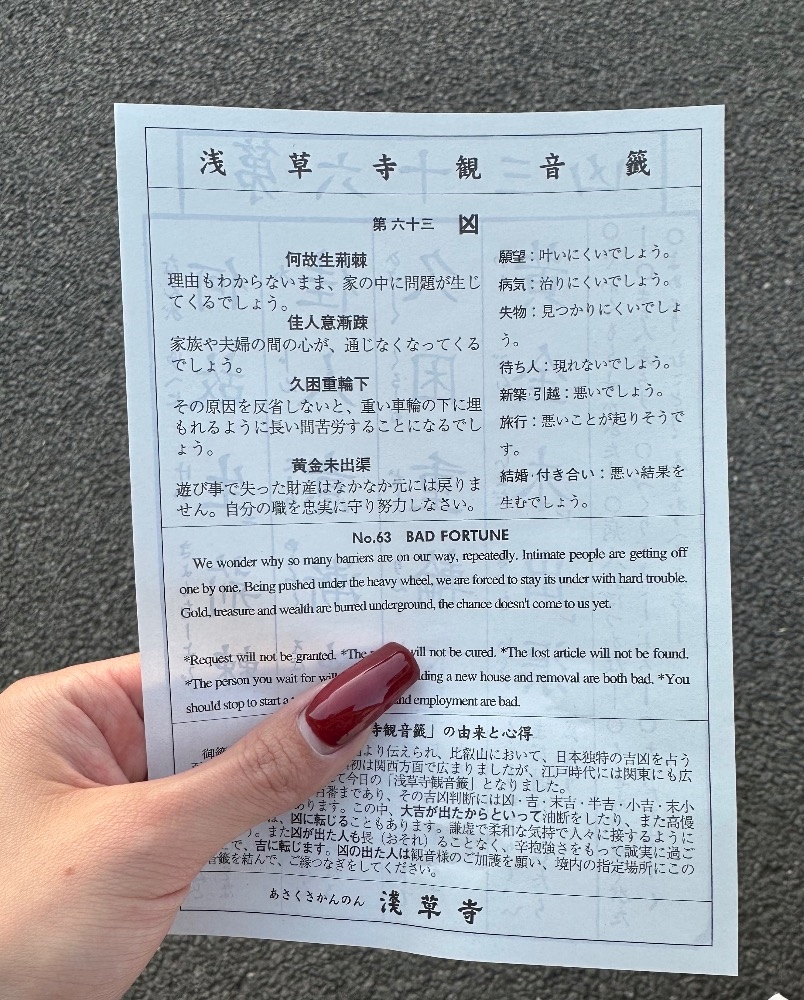 浅草寺観音籤
第六十三 凶
何故生荊棘
理由もわからないまま、家の中に問題が生じ
てくるでしょう。
佳人意漸踈
家族や夫婦の間の心が、通じなくなってくる
でしょう。
久困重輪下
その原因を反省しないと、重い車輪の下に埋
もれるように長い間苦労することになるでし
ょう。
黄金未出渠
遊び事で失った財産はなかなか元には戻りま
せん。自分の職を忠実に守り努力しなさい。
願望：叶いにくいでしょう。
病気：治りにくいでしょう。
失物：見つかりにくいでしょ
う。
待ち人：現れないでしょう。
新築·引越：悪いでしょう。
旅行：悪いことが起りそうで
す。
結婚·付き合い：悪い結果を
生むでしょう。
No.63 BAD FORTUNE
We wonder why so many barriers are on our way, repeatedly. Intimate people are getting off
one by one. Being pushed under the heavy wheel, we are forced to stay its under with hard trouble.
Gold, treasure and wealth are burred underground, the chance doesn't come to us yet.
*Request will not be granted. *The will not be cured. *The lost article will not be found.
*The person you wait for a new house and removal are both bad. *You
should stop to start a and employment are bad.
寺観音籤」の由来と心得
より伝えられ、比叡山において、日本独特の吉凶を占う
初は関西方面で広まりましたが、江戸時代には関東にも広
て今日の「浅草寺観音籤」となりました。
番まであり、その吉凶判断には凶・吉・末吉・半吉・小吉・末小
あります。この中、大吉が出たからといって油断をしたり、また高慢
は、凶に転じることもあります。謙虚で柔和な気持で人々に接するように
。また凶が出た人も長（おそれ）ることなく、辛抱強さをもって誠実に過ご
で、吉に転じます。凶の出た人は観音様のご加護を願い、境内の指定場所にこの
音籤を結んで、ご縁つなぎをしてください。
あさくさかんのん 淺草寺